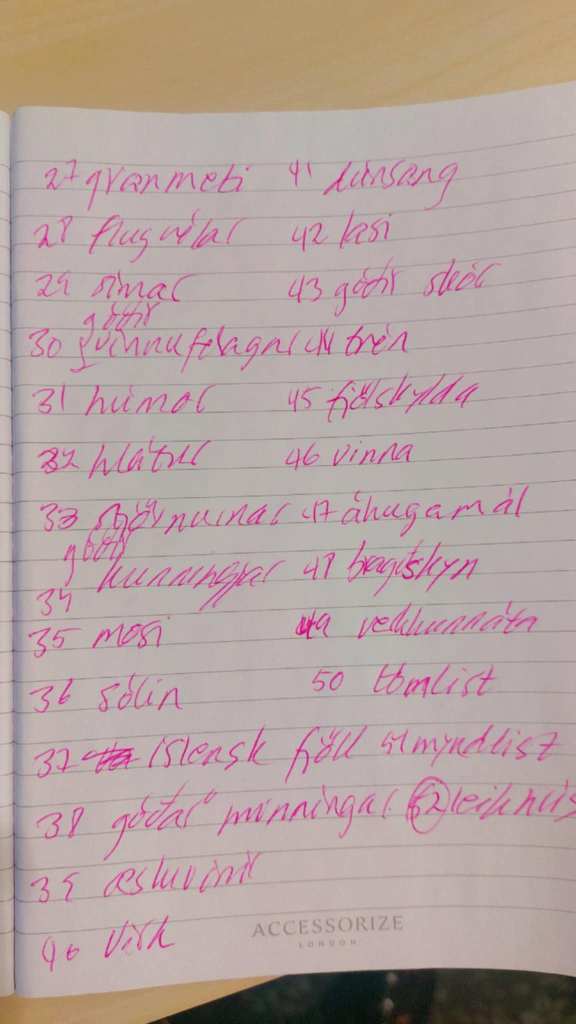 27 grænmeti
28 flugvélar
29 símar
góðir
30 vinnufélagar
31 húmor
32 hlátur
33 stjörnurnar
góðir
34 kunningjar
35 mosi
36 sólin
37 íslensk fjöll
38 góðar minningar
39 æskuvinir
40
41
42
43 góðir skór
44 trén
45 fjölskylda
46 vinna
47 áhugamál
48 bragðskyn
49
50 tónlist
51 myndlist
52 leikhús
ACCESSORIZE
LONDON